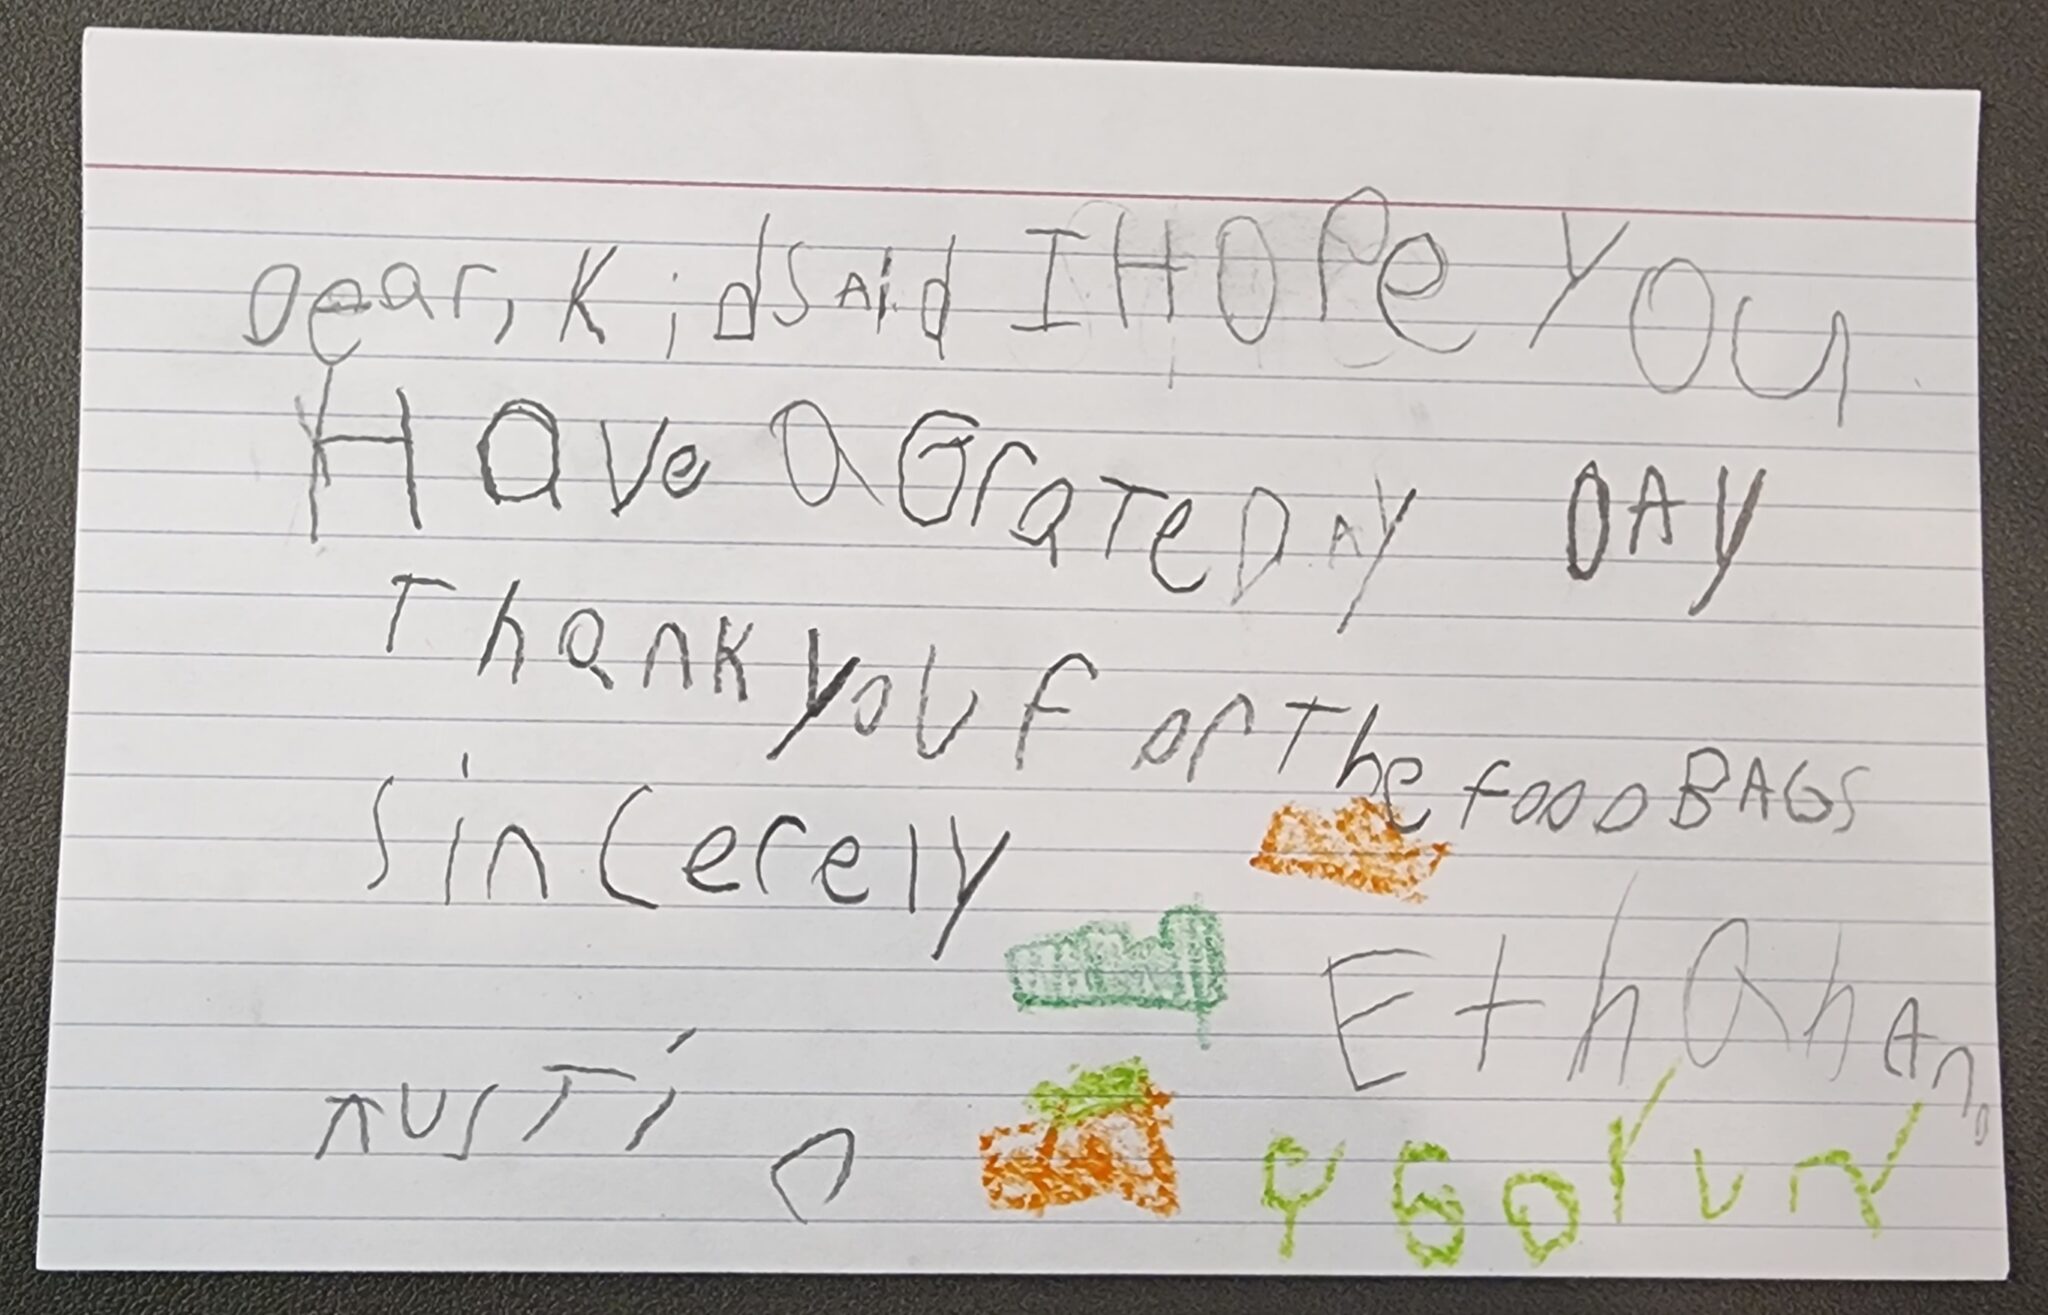 Dear, Kidsaid I HOPe YOu
HAve A GraTe DAY DAY
Thank you For The FOOD BAGS
Sincerely
EthAn